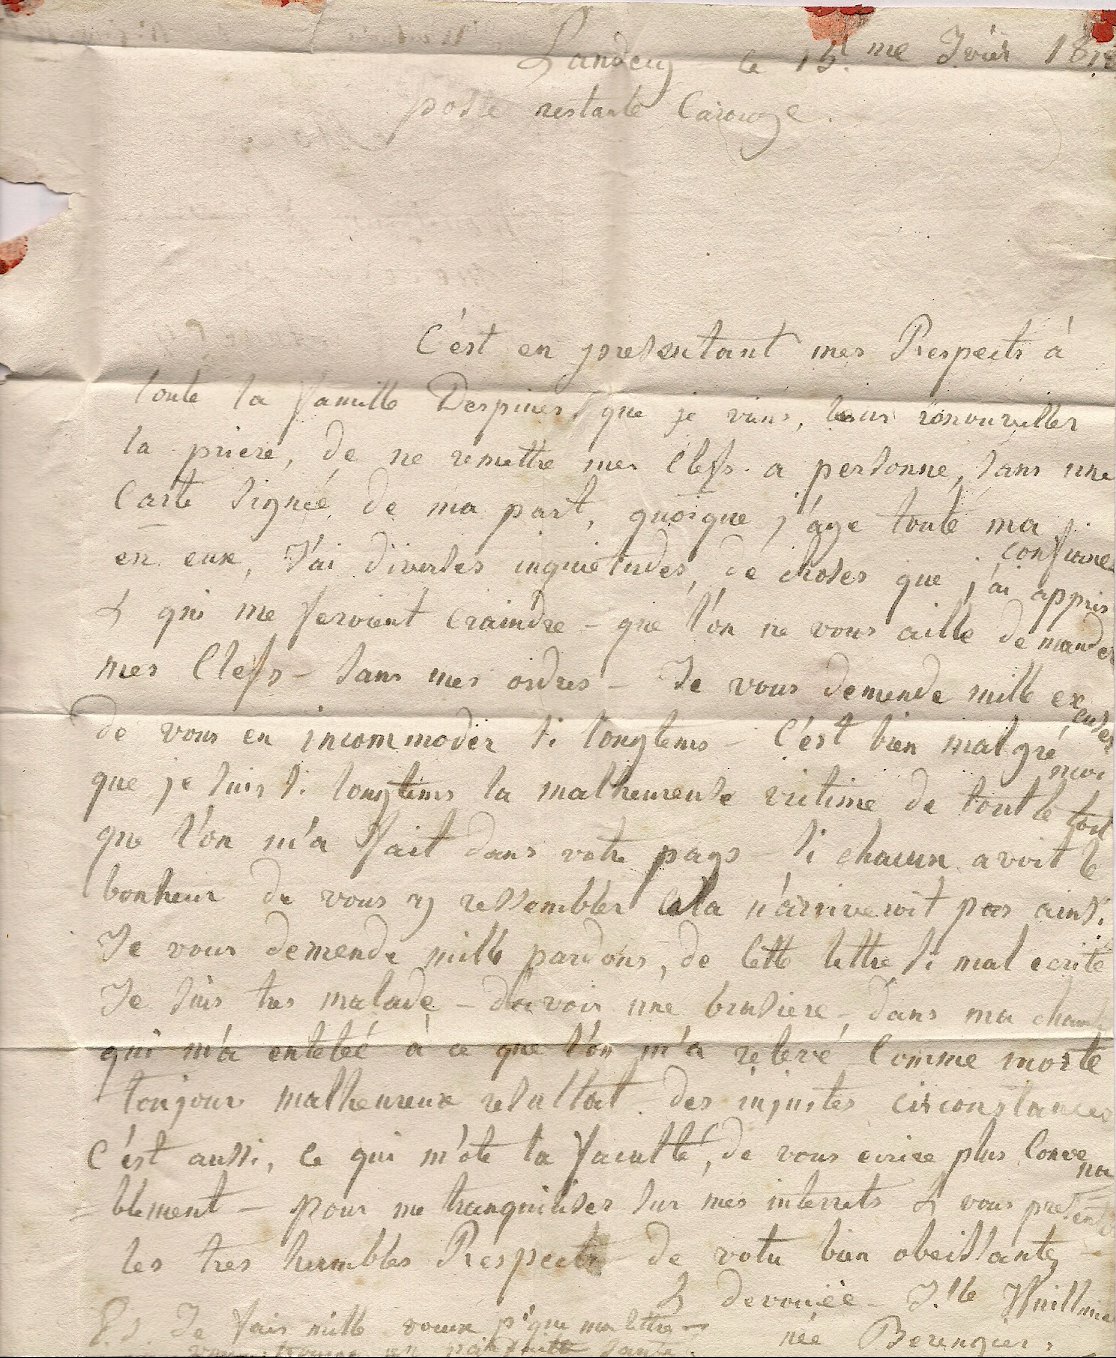 Landecy le 15.me Jvier 18
poste restante Carouge.
C'ést en presentant mes Respects à
toute la famille Despines, que je viens, leur renouveller
la priere, de ne remettre mes Clefs a personne, sans une
Carte signée de ma part, quoique j'aye toute ma confiance
en eux, J'ai diverses inquietudes, de choses que j'ai appris
& qui me feroient craindre – que l'on ne vous aille demander
mes Clefs – sans mes ordres – Je vous demende mille excuses
de vous en incommoder si longtems – C'ést bien malgré moi
que je suis si longtems la malheureuse victime de tout le tort
que l'on m'a fait dans votre pays – si chacun avoit le
bonheur de vous y ressembler cela n'arriveroit pas ainsi.
Je vous demende mille pardons, de cette lettre si mal ecrite
Je suis tres malade – d'avoir une brasiere – dans ma
qui m'a entetée à ce que l'on m'a relevé Comme morte
toujour malheureux resultat des injustes circonstances
C'ést aussi, ce qui m'ote la faculté, de vous ecrire plus Convena
=blement – pour me tranquiliser sur mes interrets & vous presenter
les tres humbles Respects de votre bien obeissante –
& devouée – J.lle
née Berengier.
P.S. Je fais mille voeux p.r que ma lettre –
vous trouve en parfaitte santé.